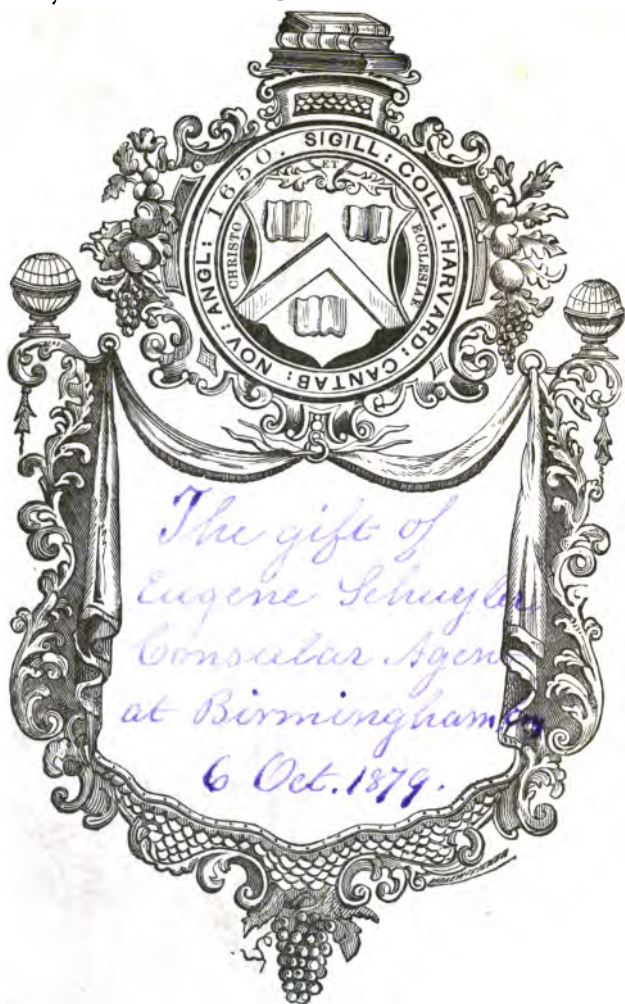 SIGILL: COLL: HARVARD: CANTAB: NOV: ANGL: 1650.
CHRISTO
ET
ECCLESIAE
The gift of
Eugene Schuyler
Consular Agent
at Birmingham
6 Oct. 1879.